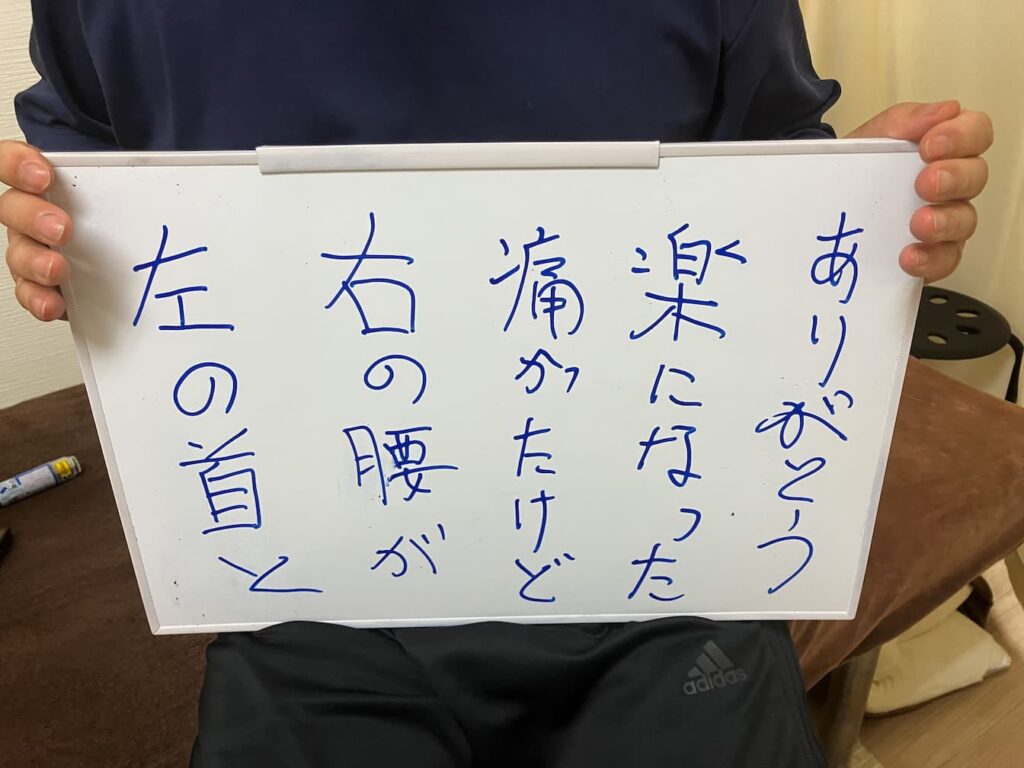 左の首と
右の腰が
痛かったけど
楽になった
ありがとう
adidas